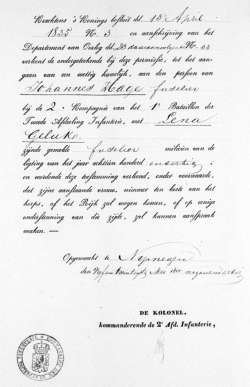 Krachtens 's Konings besluit de 12 April
1835 N. 3 en aanschrijving van het
Departement van Oorlog de
verleent de ondergeteekende bij deze permissie, tot het
aangaan van een wettig huwelijk, aan den persoon van
Johannes Hage fuselier
bij de 2 Compagnie van het 1e Bataillon der
Tweede Afdeeling Infanterie, met Lena
Geluke
zijnde gemelde fuselier milicien van de
ligting van het jaar achttien honderd
en wordende deze toestemming verleend, onder voorwaarde,
dat zijne aanstaande vrouw, nimmer ten laste van het
korps, of het Rijk zal mogen komen, of op eenige
ondersteuning van die zijde, zal kunnen aanspraak
maken. —
Opgemaakt te Nijmegen
den Mei
DE KOLONEL,
kommanderende de 2e Afd. Infanterie,